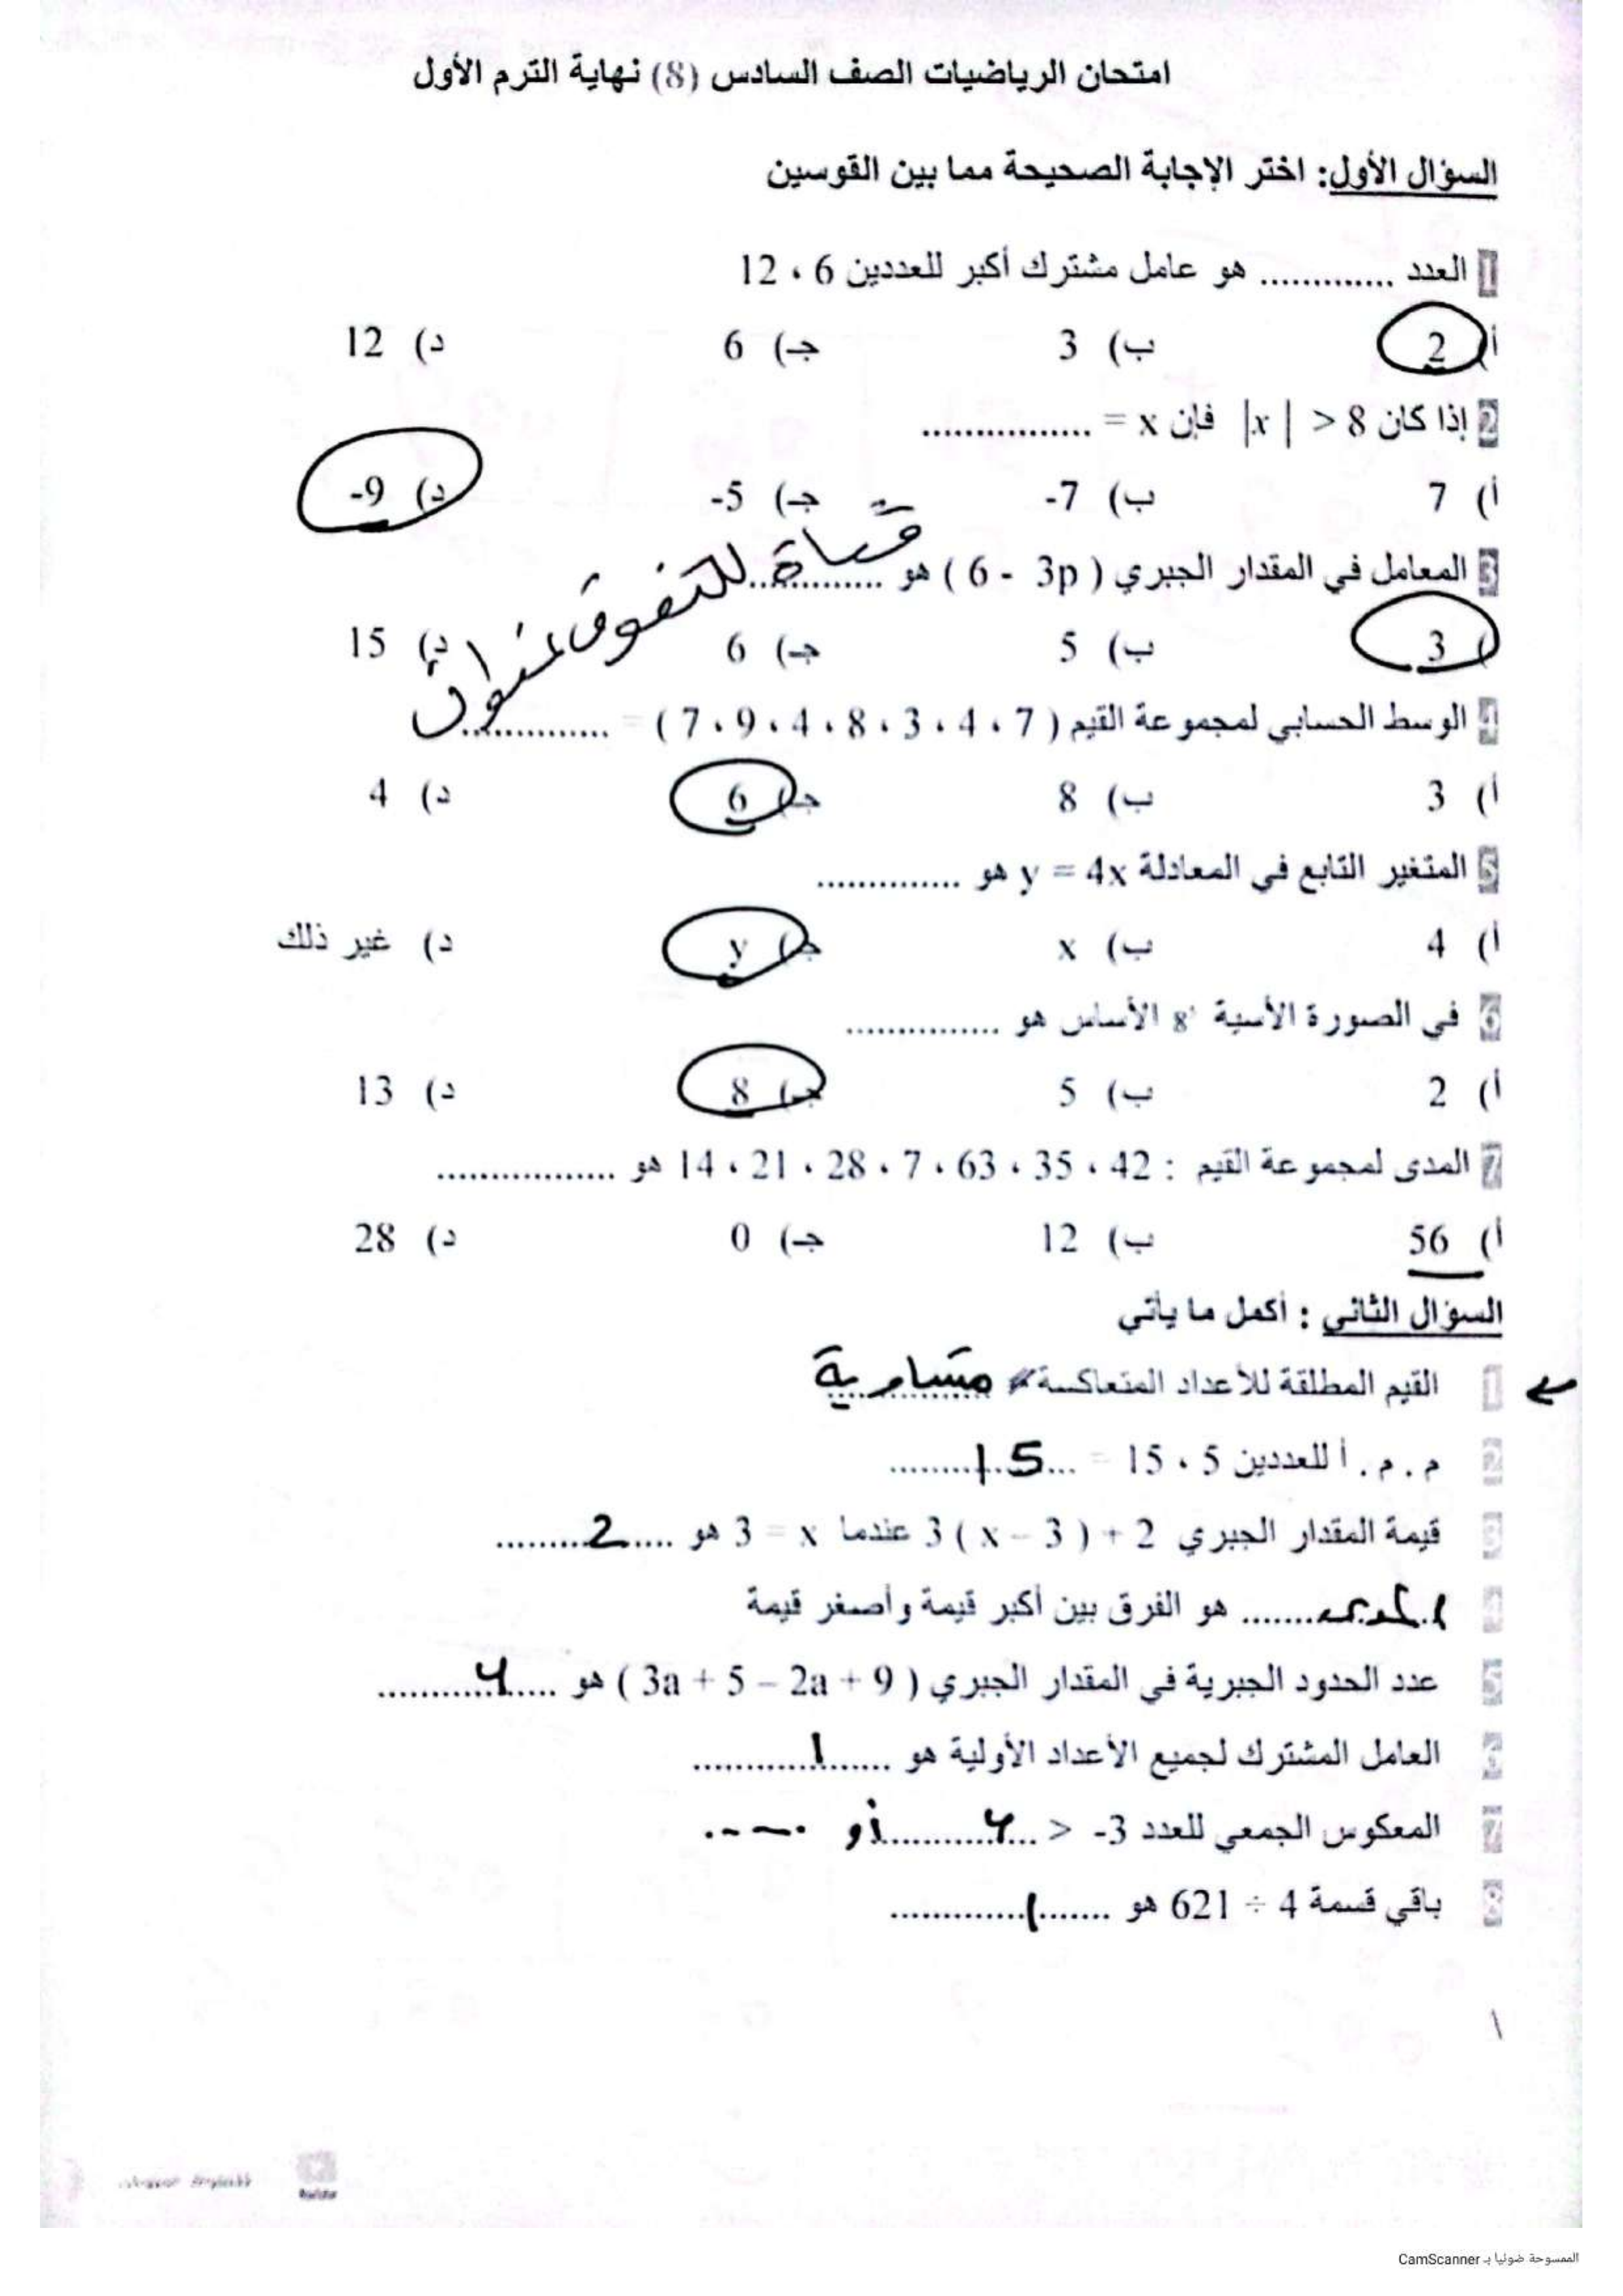 امتحان الرياضيات الصف السادس (8) نهاية الترم الأول
السؤال الأول: اختر الإجابة الصحيحة مما بين القوسين
1 العدد .............. هو عامل مشترك أكبر للعددين 6 ، 12
أ) 2 ب) 3 جـ) 6 د) 12
2 إذا كان |x| > 8 فإن x = ................
أ) 7 ب) -7 جـ) -5 د) -9
3 المعامل في المقدار الجبري ( 6 - 3p ) هو ..............
قناة للتفوق عنوان
أ) 3 ب) 5 جـ) 6 د) 15
4 الوسط الحسابي لمجموعة القيم ( 7 ، 4 ، 3 ، 8 ، 4 ، 9 ، 7 ) = ..............
أ) 3 ب) 8 جـ) 6 د) 4
5 المتغير التابع في المعادلة y = 4x هو ..............
أ) 4 ب) x جـ) y د) غير ذلك
6 في الصورة الأسية 8 الأساس هو ...............
أ) 2 ب) 5 جـ) 8 د) 13
7 المدى لمجموعة القيم : 42 ، 35 ، 63 ، 7 ، 28 ، 21 ، 14 هو .................
أ) 56 ب) 12 جـ) 0 د) 28
السؤال الثاني : أكمل ما يأتي
1 القيم المطلقة للأعداد المتعاكسة متساوية
2 م . م . أ للعددين 5 ، 15 = ...15.........
3 قيمة المقدار الجبري 3 ( x – 3 ) + 2 عندما x = 3 هو .....2.........
4 المدى ........ هو الفرق بين أكبر قيمة وأصغر قيمة
5 عدد الحدود الجبرية في المقدار الجبري ( 3a + 5 – 2a + 9 ) هو .....4...........
6 العامل المشترك لجميع الأعداد الأولية هو ......1............
7 المعكوس الجمعي للعدد -3 < ...4.......... أو ....
8 باقي قسمة 621 ÷ 4 هو .......1.............
١
الممسوحة ضوئيا بـ CamScanner